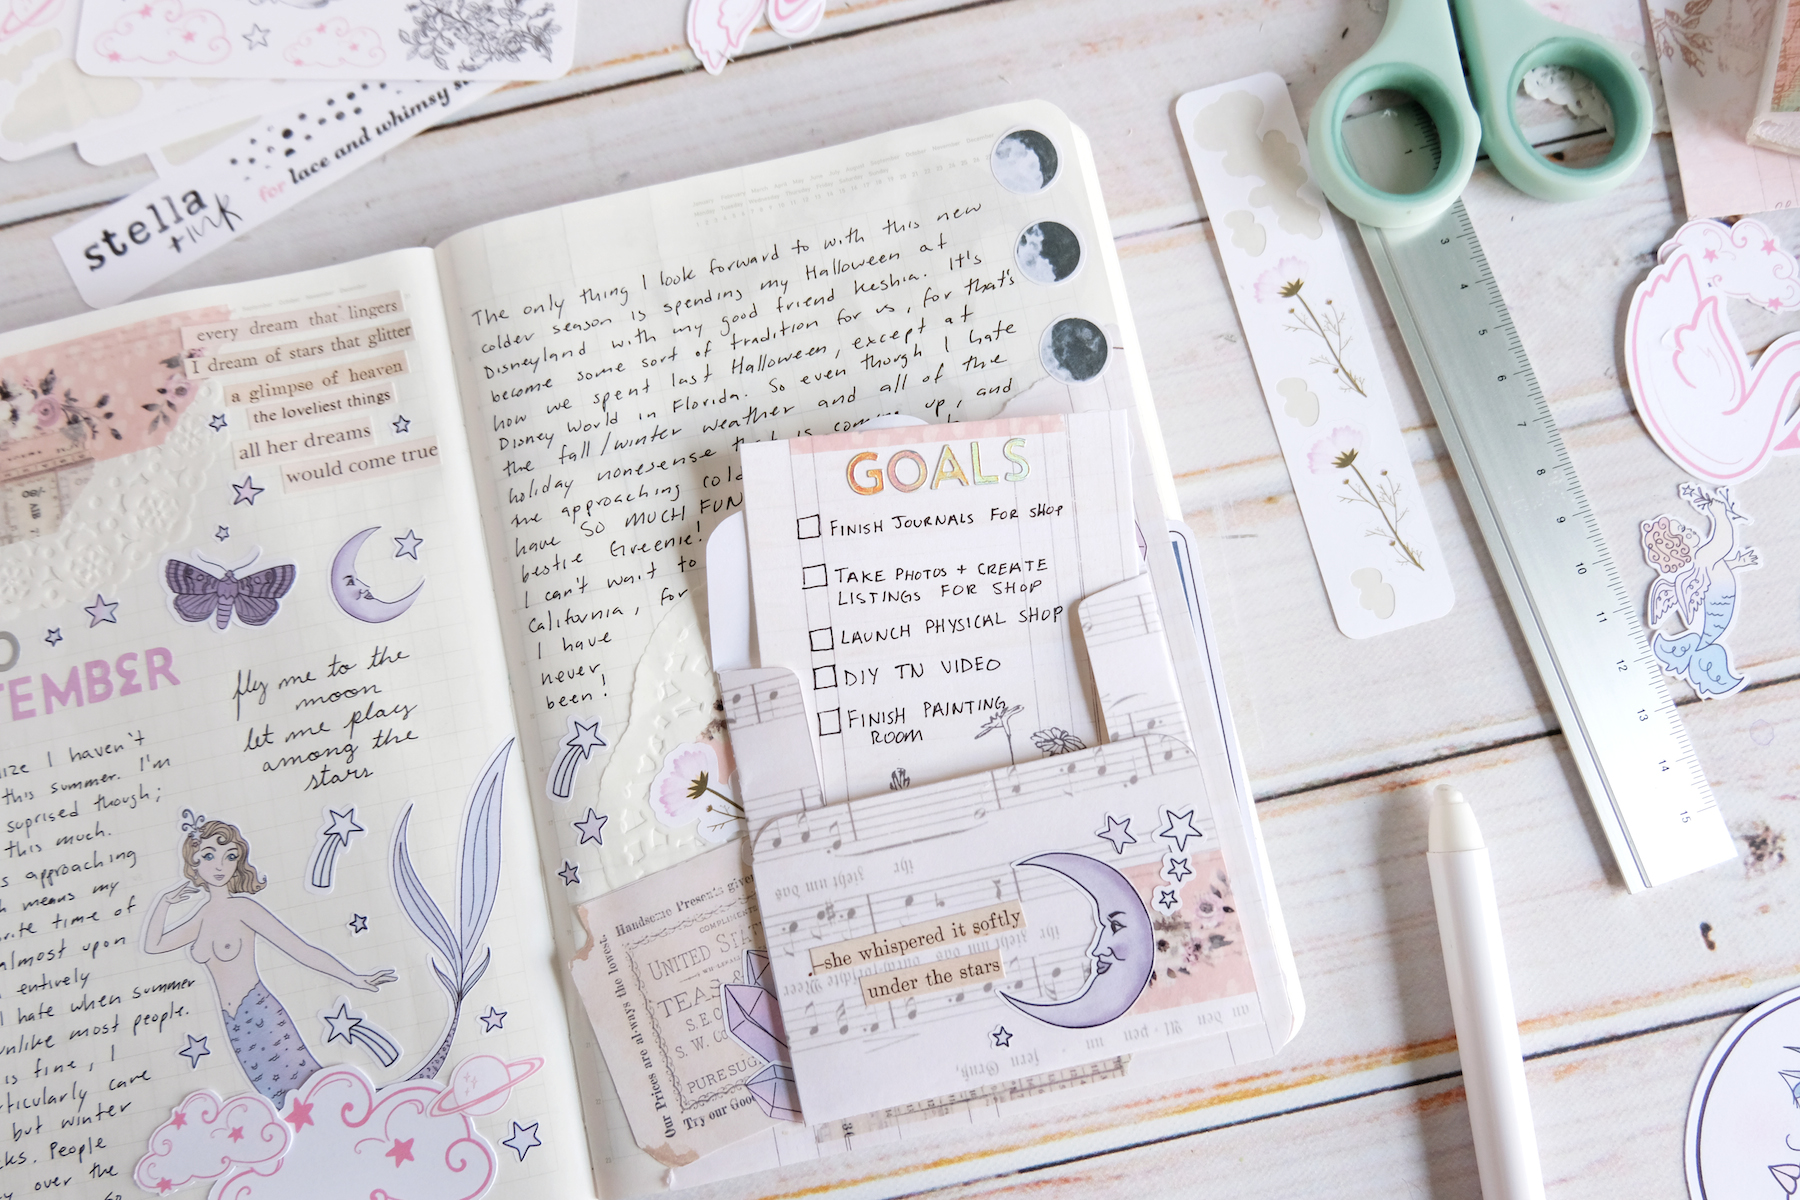 stella
+ INK
for lace and whimsy
every dream that lingers
I dream of stars that glitter
a glimpse of heaven
the loveliest things
all her dreams
would come true
TEMBER
fly me to the
moon
let me play
among the
stars
I haven't
this summer. I'm
suprised though;
this much.
approaching
means my
time of
almost upon
entirely
I hate when summer
unlike most people.
is fine, I
care
but winter
People
over the
The only thing I look forward to with this new
colder season is spending my Halloween at
Disneyland with my good friend Keshia. It's
become some sort of tradition for us, for that's
how we spent last Halloween, except at
Disney World in Florida. So even though I hate
the fall/winter weather and all of the
holiday nonesense that is coming up, and
the approaching cold
have SO MUCH FUN
bestie Greenie!
I can't wait to
California, for
I have
never
been!
GOALS
FINISH JOURNALS FOR SHOP
TAKE PHOTOS + CREATE
LISTINGS FOR SHOP
LAUNCH PHYSICAL SHOP
DIY TN VIDEO
FINISH PAINTING
ROOM
—she whispered it softly
under the stars
Handsome Presents given
UNITED STAT
&
TEAS
S. E. C
S. W. Co
PURE SUG
Try our Goo
Our Prices are always the lowest.
3
4
5
6
7
8
9
10
11
12
13
14
15